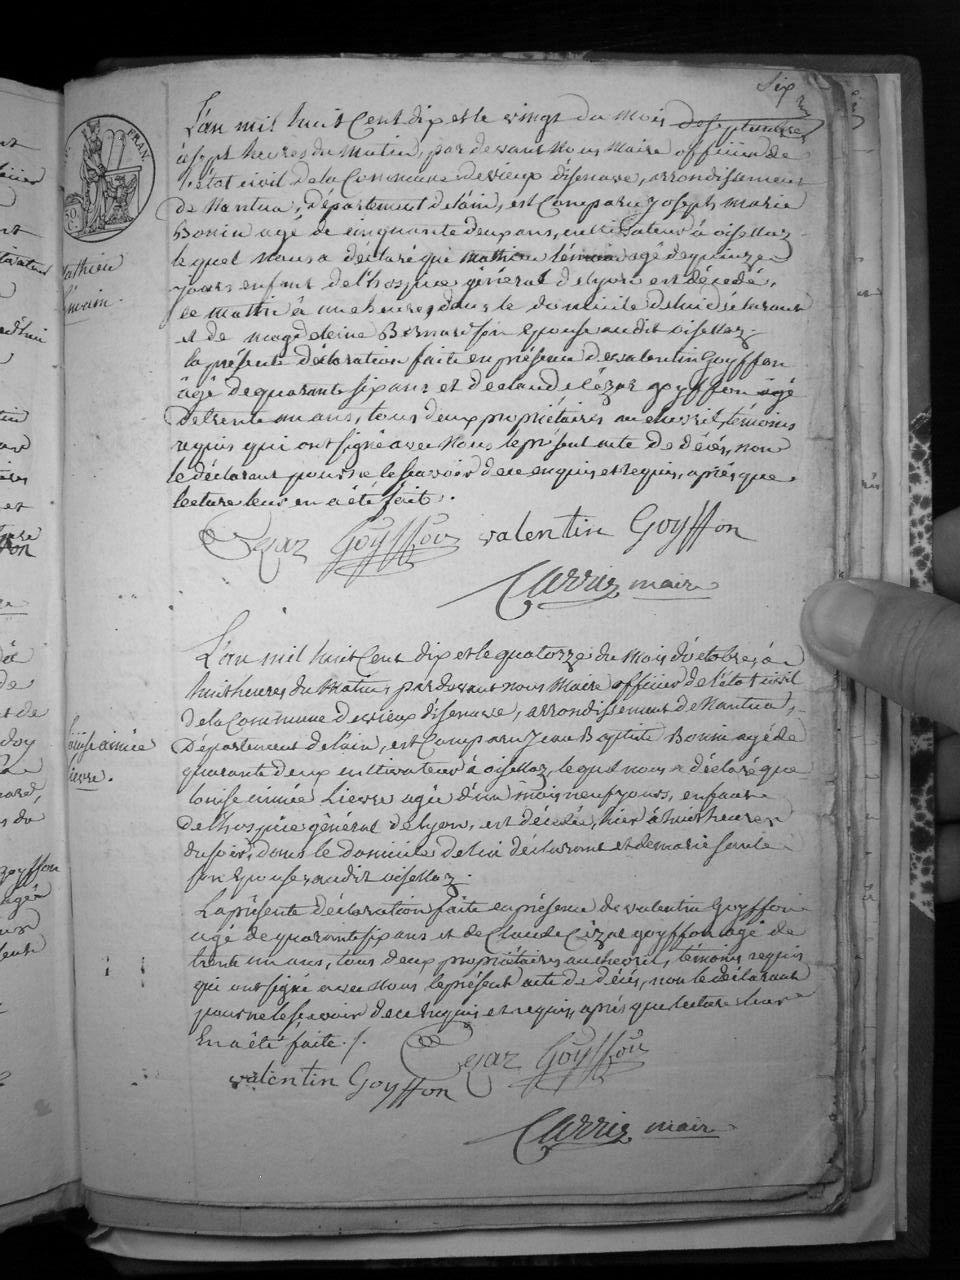 Six
L'an mil huit Cent dix et le vingt du mois de septembre
à sept heures du matin, par devant nous maire officier de
l'état civil de la Commune de vieux d'isenave, arrondissement
de Nantua, département de l'ain, est Comparu Joseph marie
Bonin agé de cinquante deux ans, cultivateur à oisellaz
lequel nous a déclaré que mathieu lémain agé de quinze
jours enfant de l'hospice général de lyon est décédé,
ce matin à une heure, dans le domicile de lui déclarant
et de magdeleine Bernard son Epouse audit oisellaz.
la présente déclaration faite en présence de valentin Goyffon
âgé de quarante six ans et de claude Cézar goyffon agé
de trente un ans, tous deux propriétaires au chevril, témoins
requis qui ont signé avec nous le présent acte de décés, non
le déclarant pour ne le scavoir de ce enquis et requis, aprés que
lecture leur en a été fait.
Cezar Goÿffon valentin Goyffon
Carrier maire
Mathieu
lémain.
L'an mil huit Cent dix et le quatorze du mois d'octobre, à
huit heures du Matin, par devant nous Maire officier de l'état civil
de la Commune de vieux d'isenave, arrondissement de Nantua,
Département de l'ain, est Comparu Jean Baptiste Bonin agé de
quarante deux cultivateur à oisellaz, lequel nous a déclaré que
louise aimée Lierre agée d'un mois neuf jours, enfant
de l'hospice général de lyon, est décédée, hier à huit heures
du soir, dans le domicile de lui déclarant et de marie
son Epouse audit oisellaz.
La présente déclaration faite en présence de valentin Goyffon
agé de quarante six ans et de Claude Cézar goyffon agé de
trente un ans, tous deux propriétaires au chevril, témoins requis
qui ont signé avec nous le présent acte de décés, non le déclarant
pour ne le scavoir de ce enquis et requis, aprés que lecture leur
En a été faite ./.
Cezar Goÿffon
valentin Goyffon
Carrier maire
louise aimée
lierre.